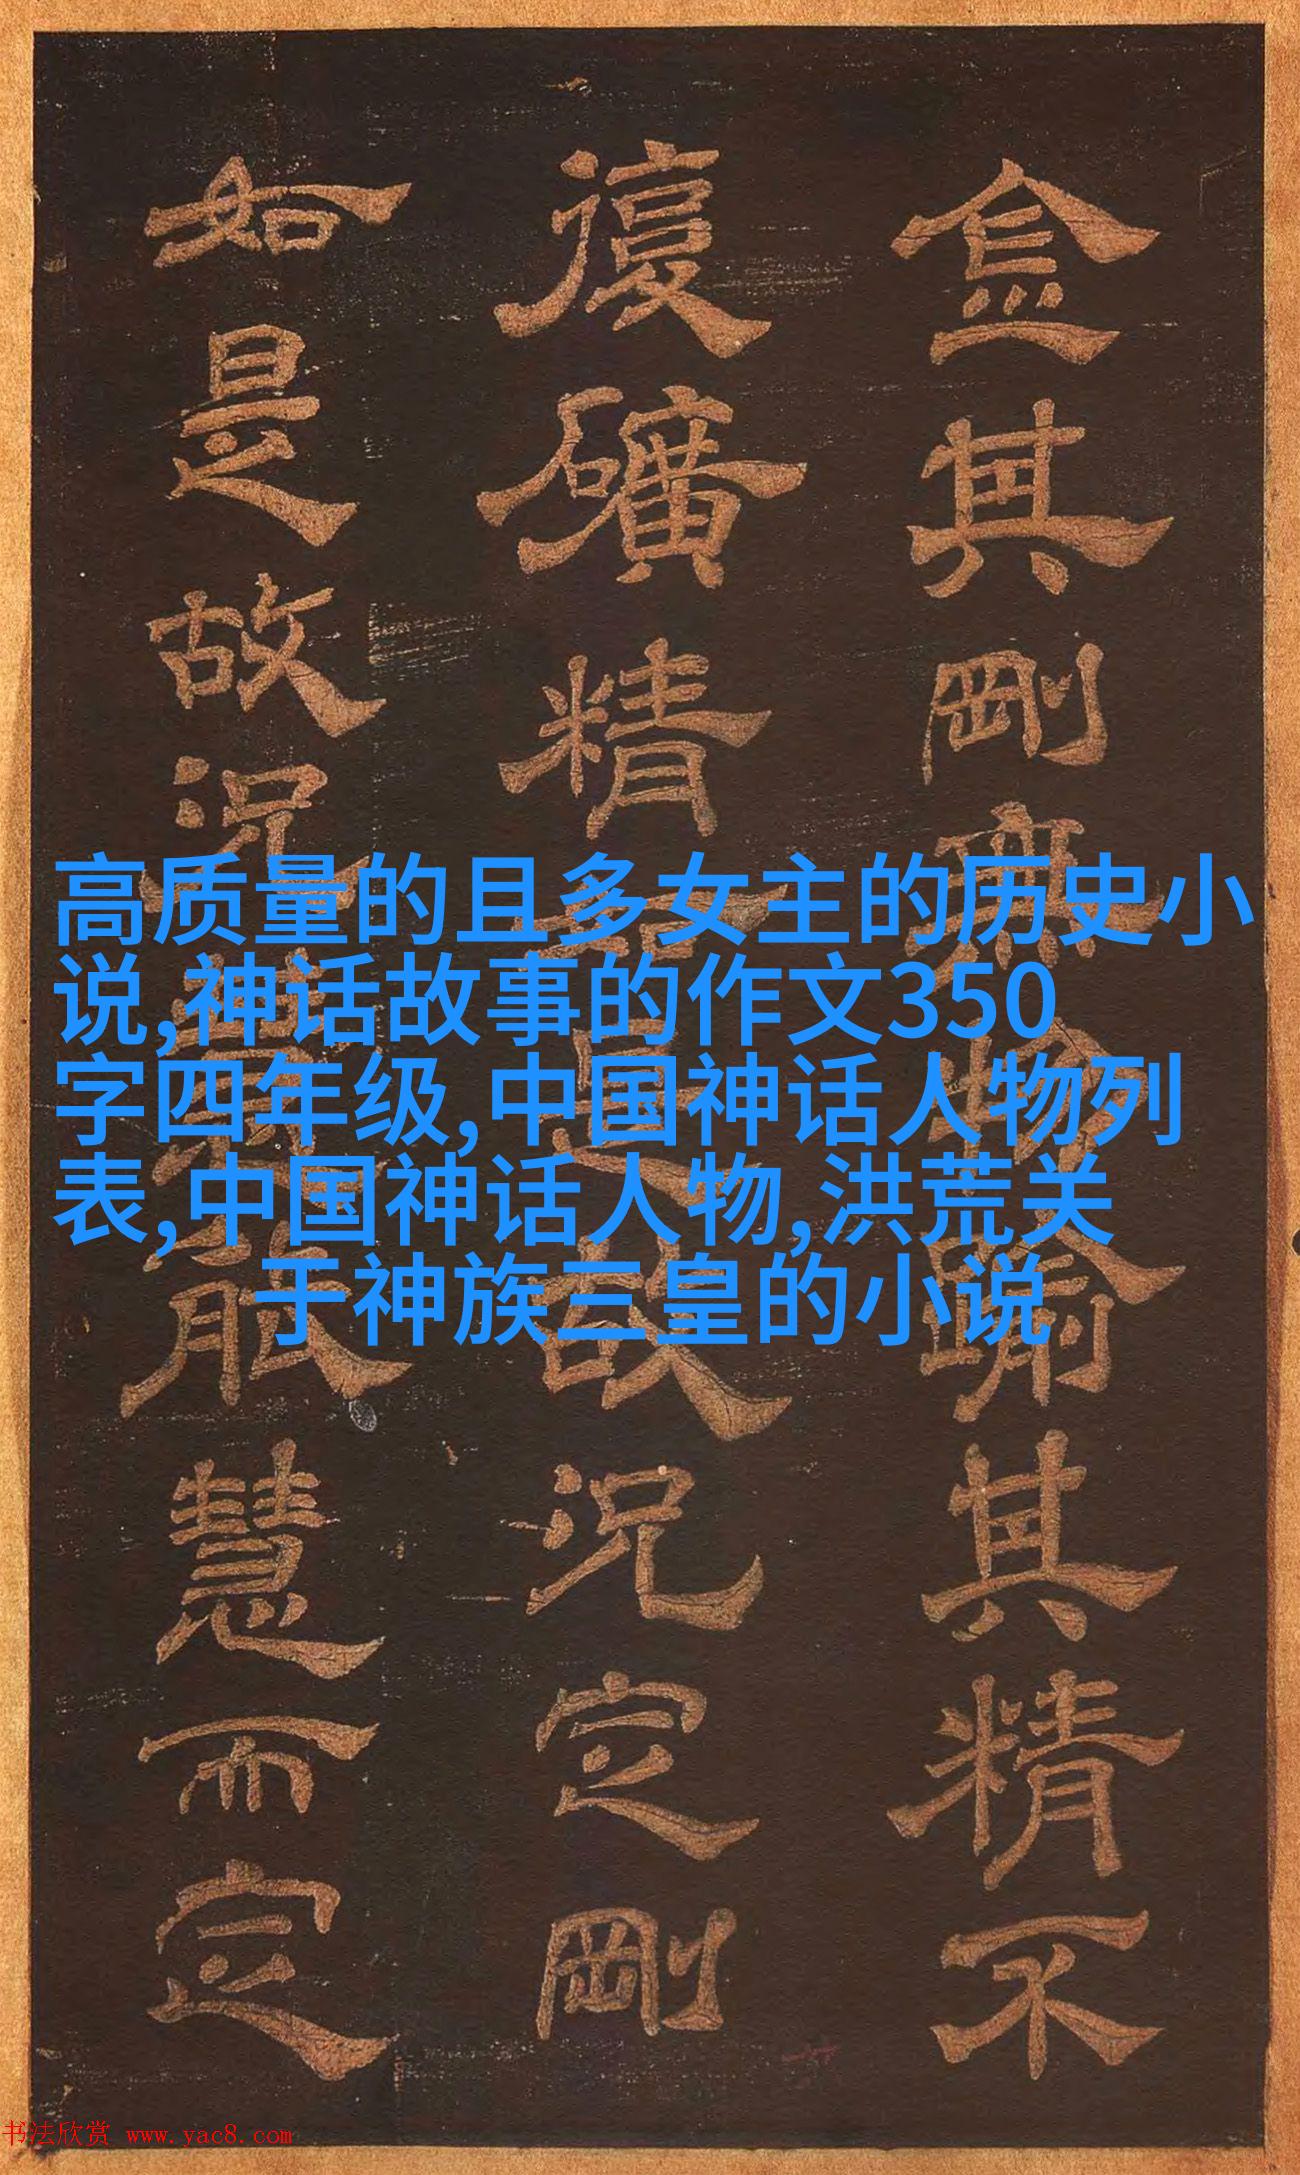 金其剛無物喻其精不
復礦精是故況定剛
如是故況慧而定
高质量的且多女主的历史小
说,神话故事的作文350
字四年级,中国神话人物列
表,中国神话人物,洪荒关
于神族三皇的小说
书法欣赏 www.yac8.com